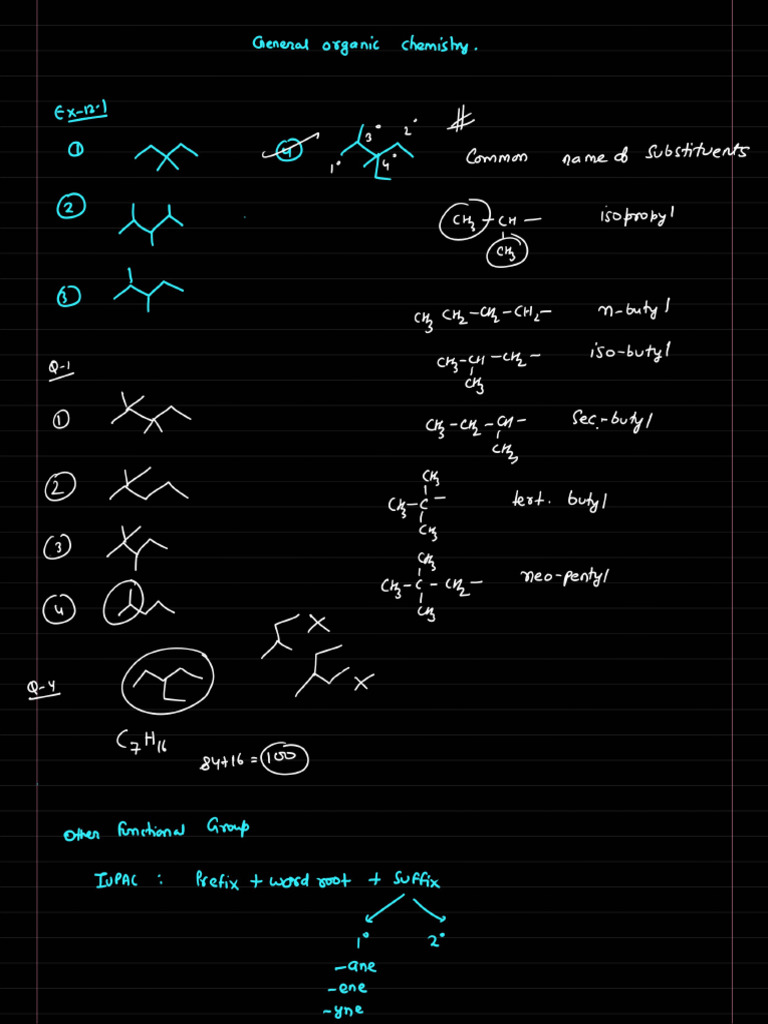 General organic chemistry.
Ex-12.1
①
④
1°
3°
4°
2°
②
③
Q-1
①
②
③
④
Q-4
C₇H₁₆
84+16 = 100
#
Common name of Substituents
CH₃ - CH - isopropyl
CH₃
CH₃ CH₂-CH₂-CH₂- n-butyl
CH₃-CH-CH₂- iso-butyl
CH₃
CH₃-CH₂-CH- Sec.-butyl
CH₃
CH₃
CH₃-C- tert. butyl
CH₃
CH₃
CH₃-C-CH₂- neo-pentyl
CH₃
X
X
Other Functional Group
IUPAC : Prefix + word root + Suffix
1° 2°
-ane
-ene
-yne